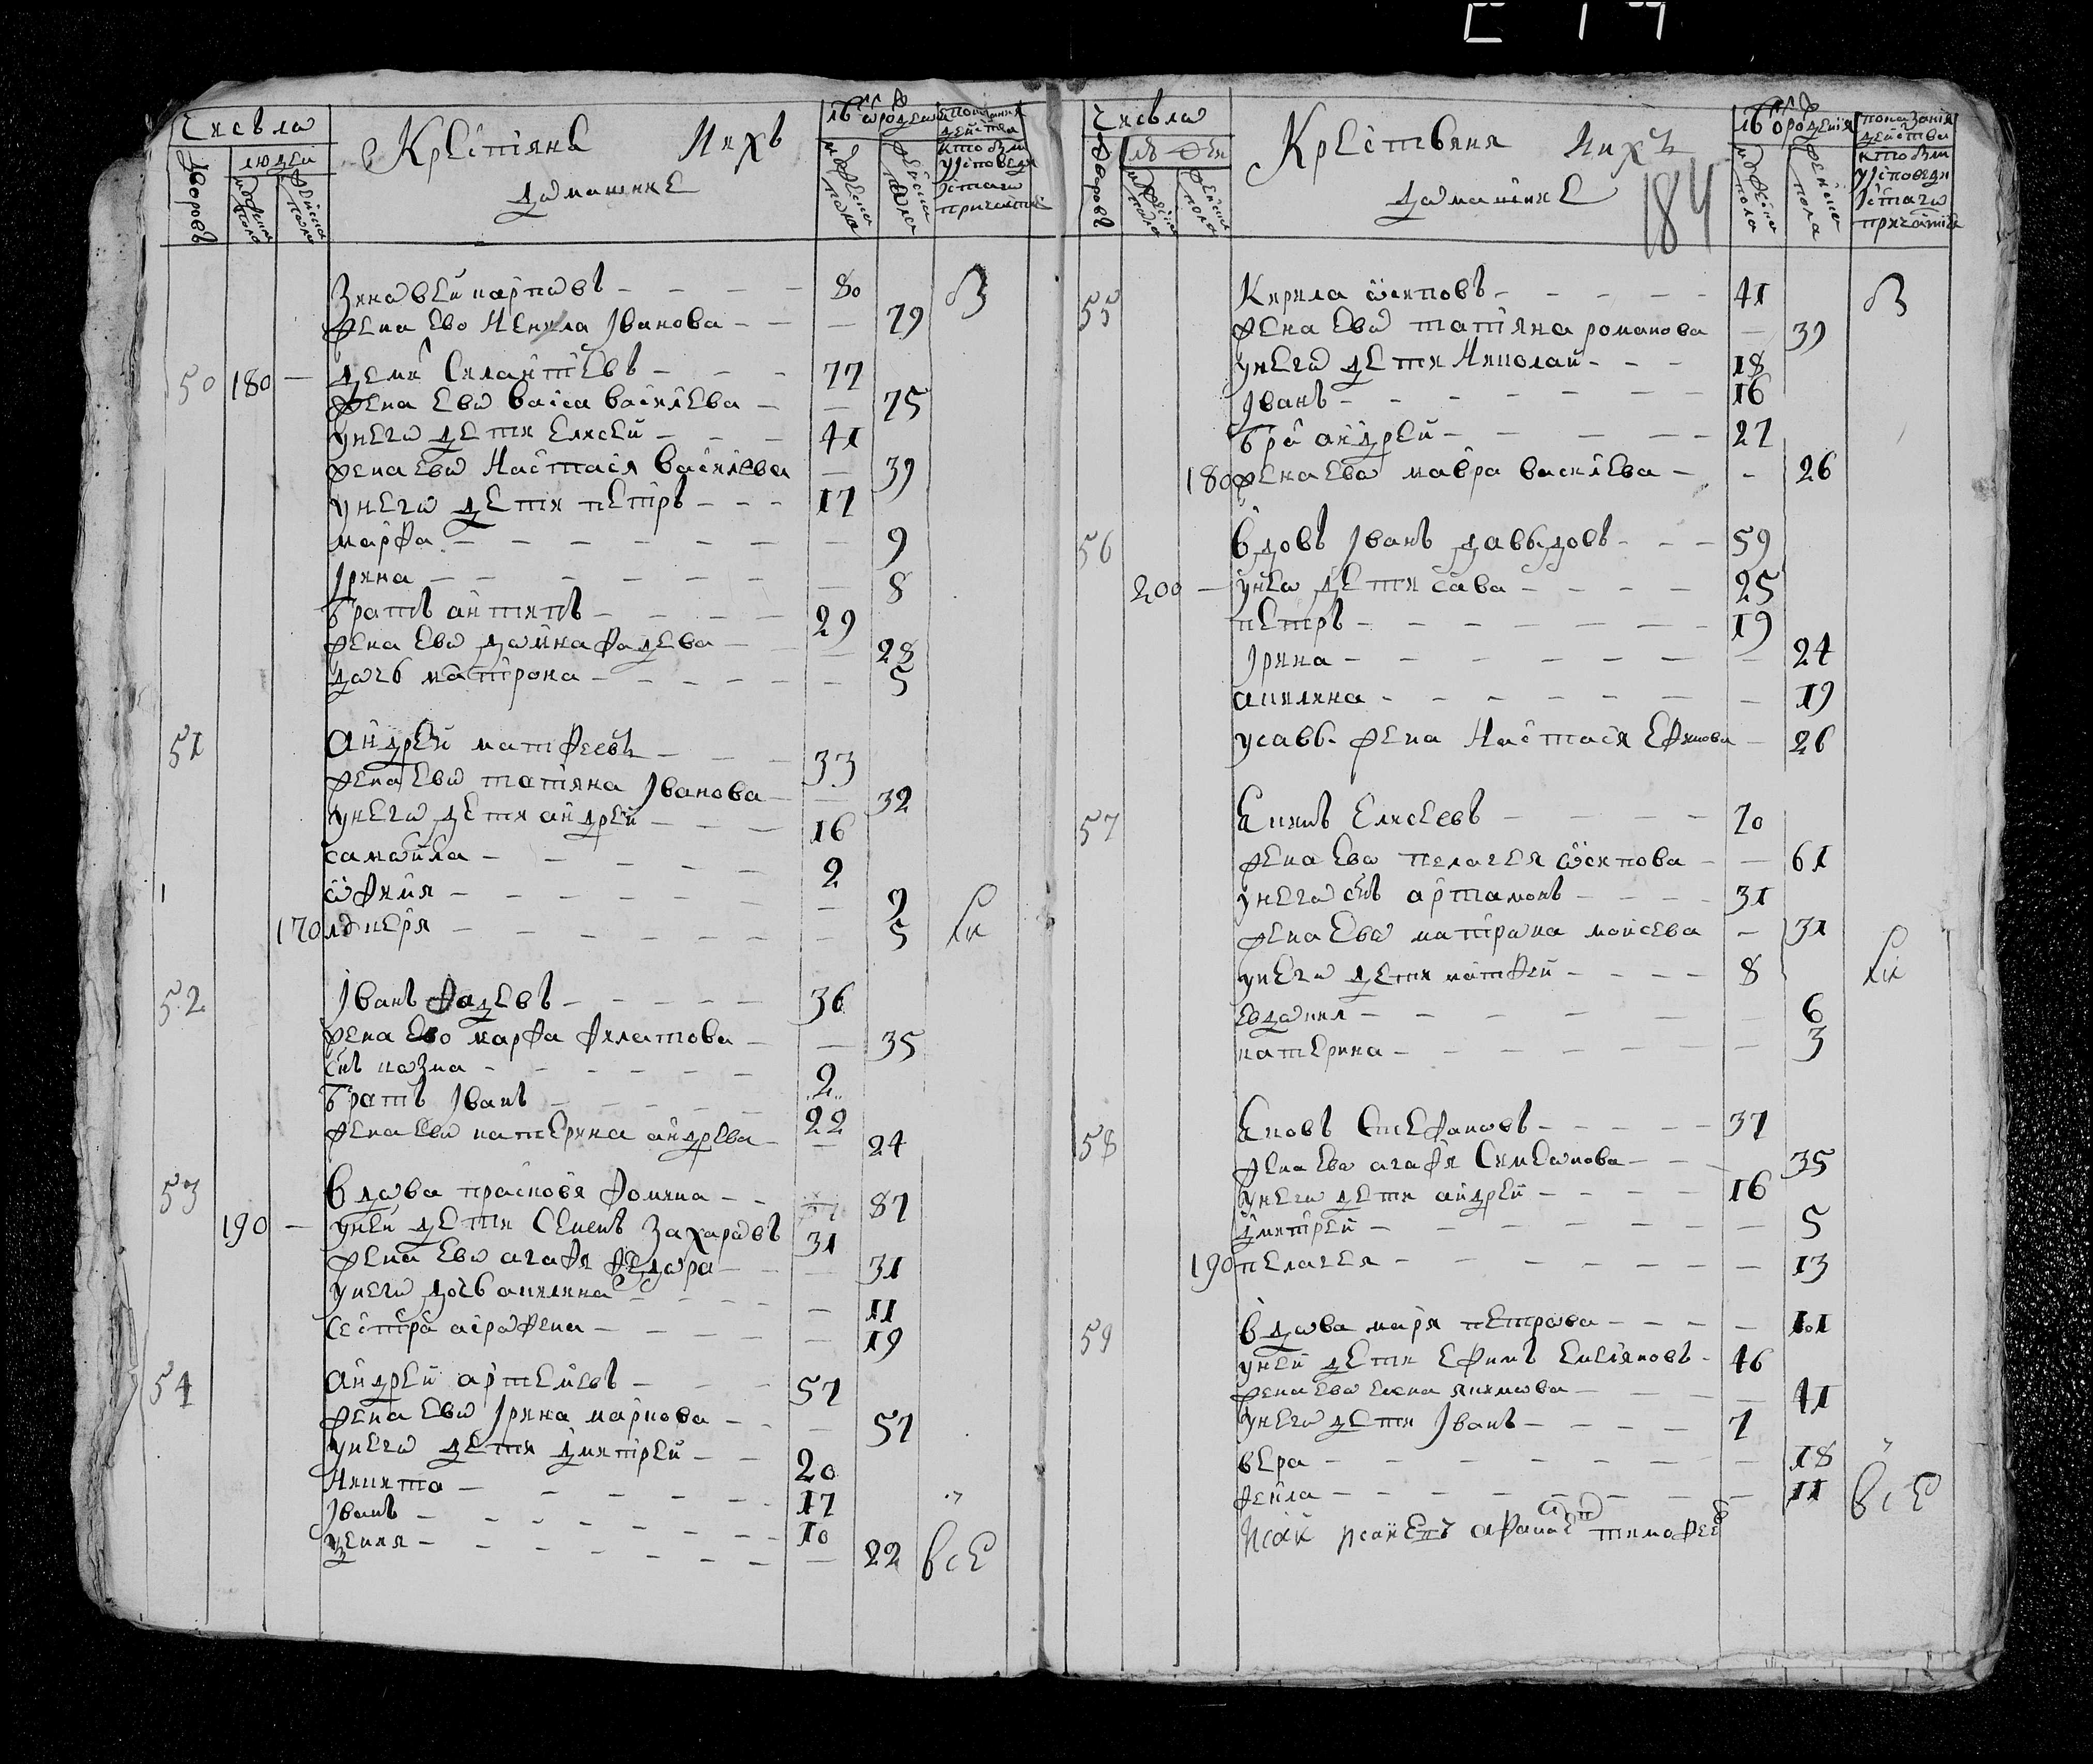 Числа
дворовъ
людей
мужеска пола
женска пола
Крестьянѣ ихъ
домашние
лѣ от рожде
мужеска пола
женска пола
показания
действа
кто были
у исповеди
и стаго
причастия
Зиновей карповъ 80
жена ево Ненила Iванова 79
50 180 Деме Силантиевъ 77
жена ево васса василиева 75
у него дети Елисей 41
жена ево Настасия Василиева 39
у него дети петръ 17
марфа 9
Iрина 8
братъ антипъ 29
жена ево домна фадеева 28
дочь матрона 5
51 Андрей матфеевъ 33
жена ево татияна Iванова 32
у него дети андрей 16
самойла 2
офимия 9
170 лукеря 5
52 Iванъ Фадеевъ 36
жена ево марфа филатова 35
снъ козма 2
братъ Iванъ 22
жена ево катерина андреева 24
53 Вдова прасковя фомина 87
190 у ней дети Семенъ Захаровъ 31
жена ево агафя федора 31
у него дочь акилина 11
сестра аграфена 19
54 Андрей артемиевъ 57
жена ево Iрина маркова 57
у него дети дмитрей 20
Никита 17
Iванъ 10
22
все
Числа
дворовъ
мужеска пола
женска пола
Крестьяня ихъ
домашние
184
лѣ от рождения
мужеска пола
женска пола
показания
действа
кто были
у исповеди
и стаго
причастия
55 Кирила осиповъ 41
жена ево татияна романова 39
у него дети Николай 18
Iванъ 16
бра андрей 27
180 жена ево мавра василиева 26
56 Вдовъ Iванъ давыдовъ 59
200 у нево дети сава 25
петръ 19
Iрина 24
акилина 19
у савы жена Настасия Ефимова 26
57 Екимъ Елисеевъ 70
жена ево пелагея осипова 61
у него снъ артамонъ 31
жена ево матрона моисеева 31
у него дети матфей 8
евдокия 6
катерина 3
58 Яковъ Стефановъ 37
жена ево агафя Симеонова 35
у него дети андрей 16
дмитрей 5
190 пелагея 13
59 Вдова маря петрова 101
у ней дети Ефимъ 46
жена ево елена якимова 41
у него дети Iванъ 7
вера 18
фекла 11
все
тимофее